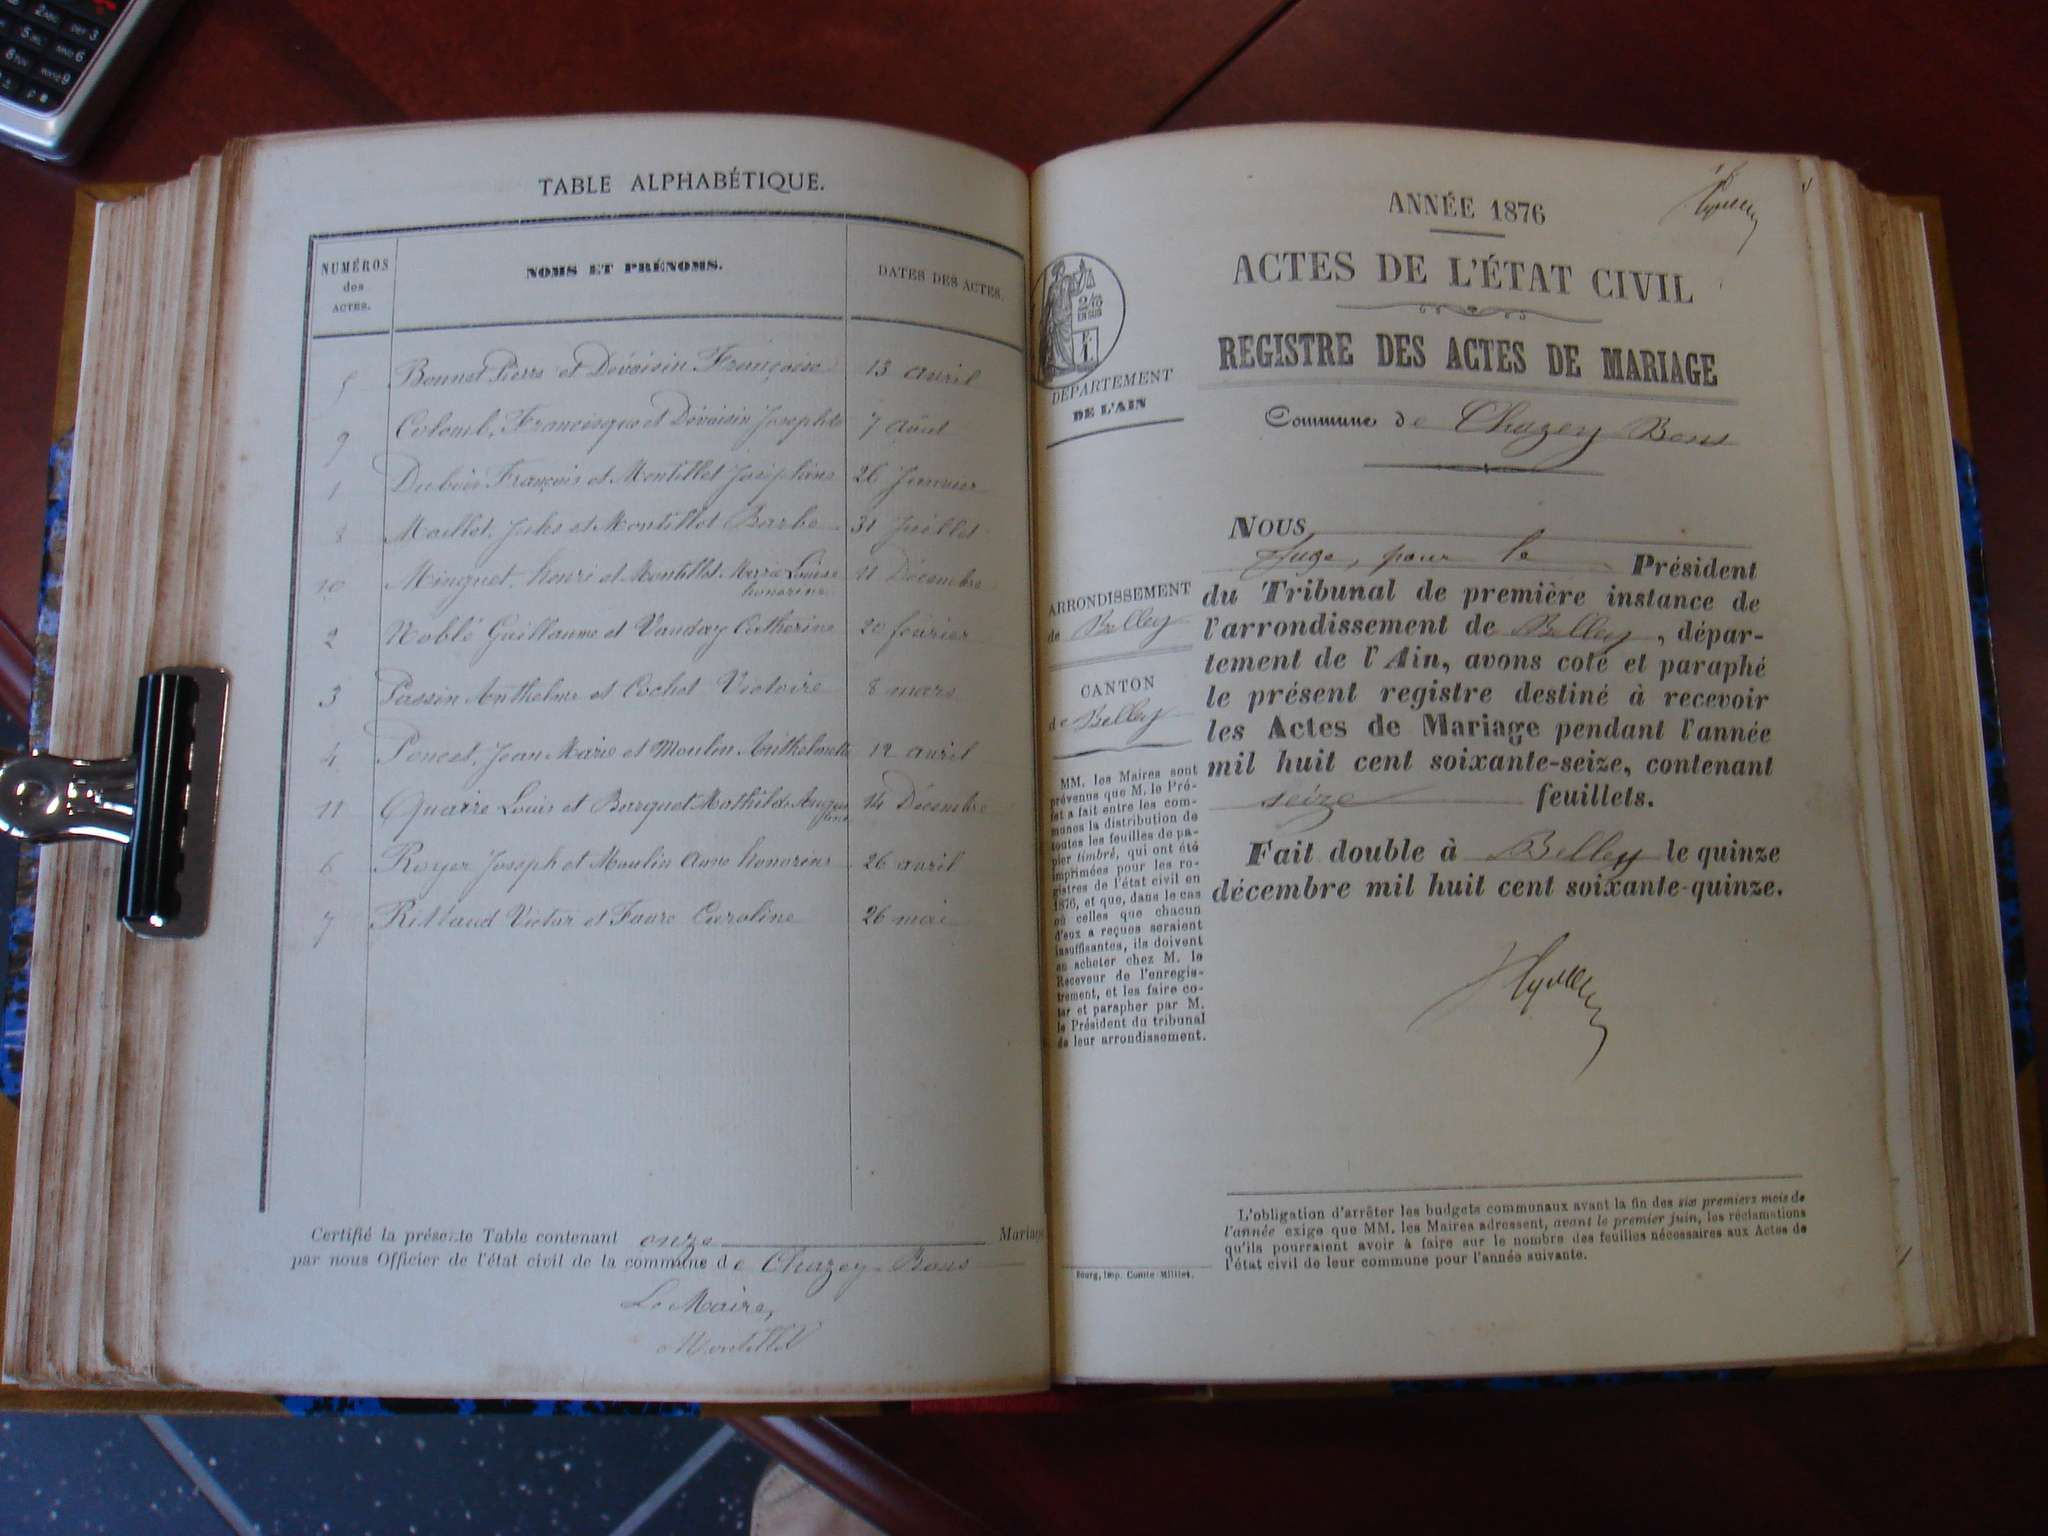 TABLE ALPHABÉTIQUE.
NUMÉROS
des
ACTES.
NOMS ET PRÉNOMS.
DATES DES ACTES.
5 Bonnet Pierre et Dévoisin Françoise 13 avril
9 Colomb, Francisque et Dévoisin Josephte 7 Août
1 Dubois François et Montillet Joséphine 26 Janvier
8 Maillet, Jules et Montillet Barbe 31 Juillet
10 Minguet, henri et Montillet Marie Louise 11 Décembre
honorine
2 Noblé Guillaume et Vanday Catherine 20 février
3 Passin Anthelme et Cochet Victoire 8 mars
4 Poncet, Jean Marie et Moulin Anthelmette 12 avril
11 Quaire Louis et Mathilde 14 Décembre
6 Royer Joseph et Moulin anne honorine 26 avril
7 Rillaud Victor et Favre Caroline 26 mai
Certifié la présente Table contenant onze Mariages
par nous Officier de l'état civil de la commune de Chazey-Bons
Le Maire,
Montillet
ANNÉE 1876
ACTES DE L'ÉTAT CIVIL
REGISTRE DES ACTES DE MARIAGE
Commune de Chazey Bons
2/10
EN SUS
DÉPARTEMENT
DE L'AIN
ARRONDISSEMENT
de Belley
CANTON
de Belley
MM. les Maires sont
prévenus que M. le Pré-
fet a fait entre les com-
munes la distribution de
toutes les feuilles de pa-
pier timbré, qui ont été
imprimées pour les re-
gistres de l'état civil en
1876, et que, dans le cas
où celles que chacun
d'eux a reçues seraient
insuffisantes, ils doivent
en acheter chez M. le
Receveur de l'enregis-
trement, et les faire co-
ter et parapher par M.
le Président du tribunal
de leur arrondissement.
NOUS
Juge, pour le Président
du Tribunal de première instance de
l'arrondissement de Belley, dépar-
tement de l'Ain, avons coté et paraphé
le présent registre destiné à recevoir
les Actes de Mariage pendant l'année
mil huit cent soixante-seize, contenant
seize feuillets.
Fait double à Belley le quinze
décembre mil huit cent soixante-quinze.
L'obligation d'arrêter les budgets communaux avant la fin des six premiers mois de
l'année exige que MM. les Maires adressent, avant le premier juin, les réclamations
qu'ils pourraient avoir à faire sur le nombre des feuilles nécessaires aux Actes de
l'état civil de leur commune pour l'année suivante.
Bourg, Imp. Comte-Milliet.